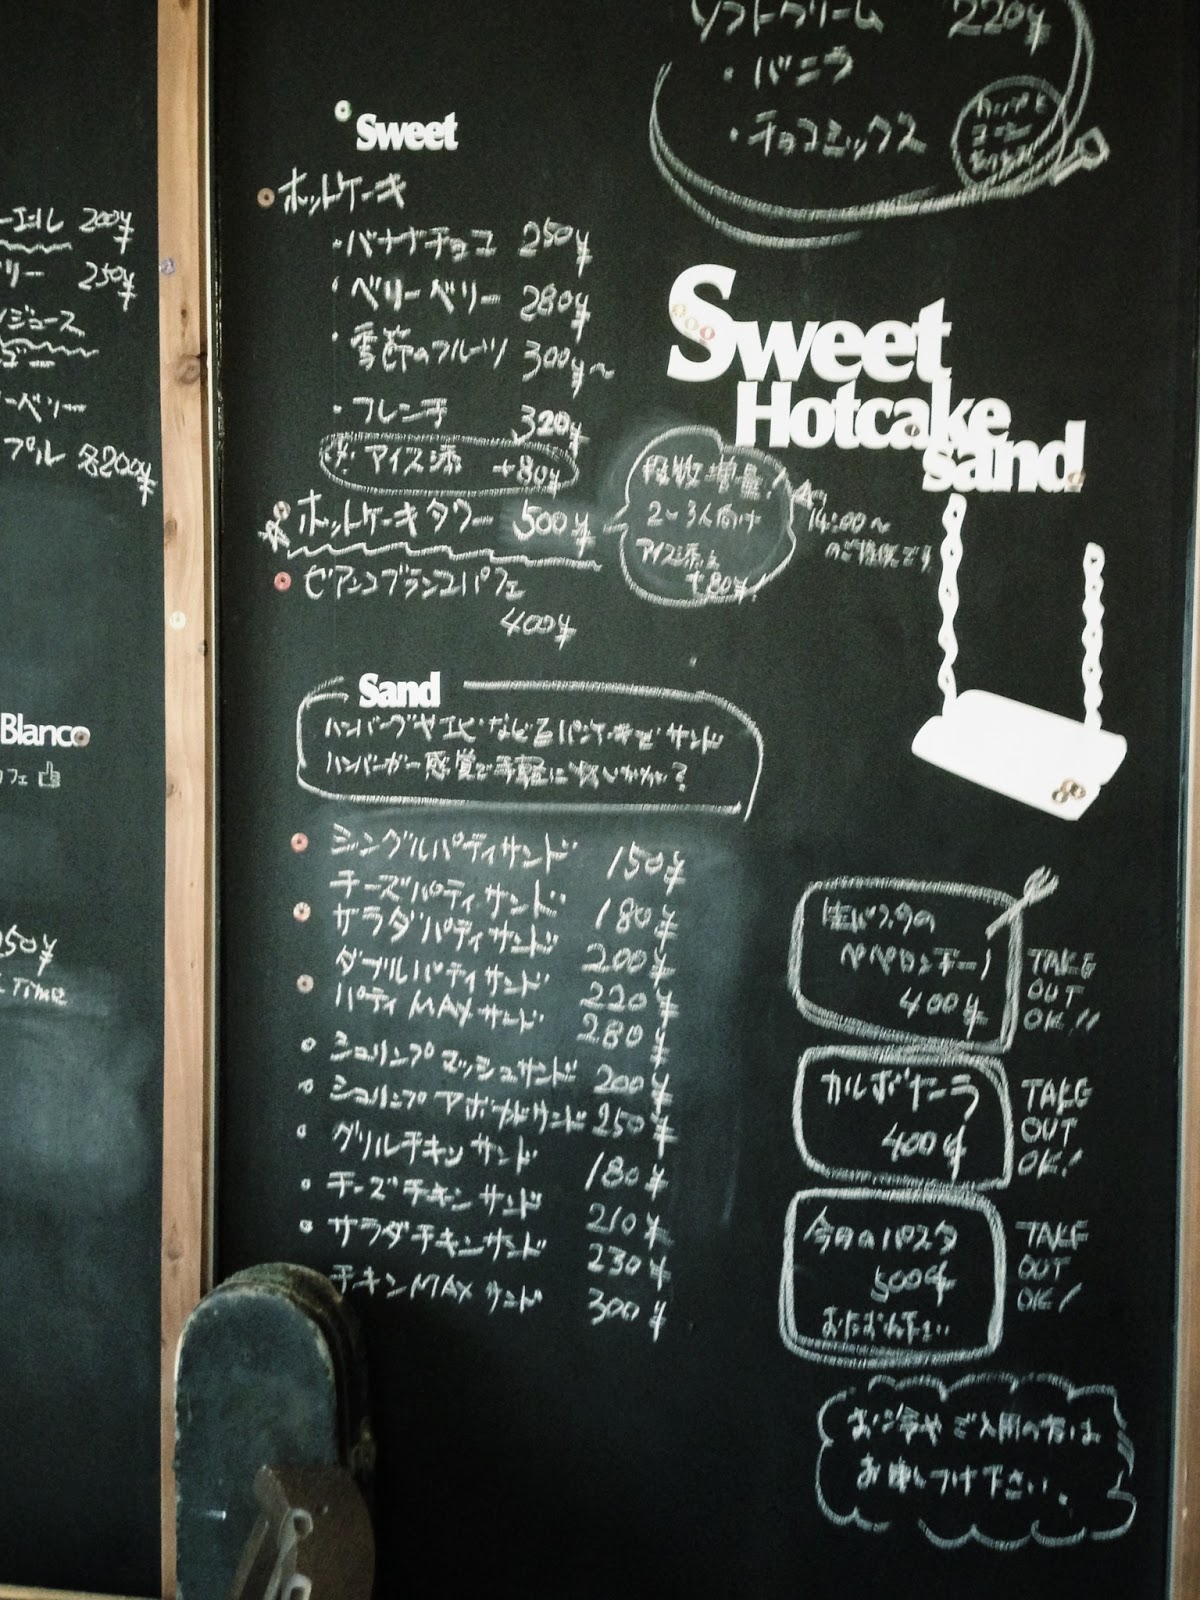 ーエル 200¥
リー 250¥
ンジュース
ーベリー
プル 各200¥
Blanco
カフェ
250¥
TIME
ソフトクリーム 220¥
・バニラ
・チョコミックス
Sweet
ホットケーキ
・バナナチョコ 250¥
・ベリーベリー 280¥
・季節のフルーツ 300¥〜
・フレンチ 320¥
アイス添 +80¥
ホットケーキタワー 500¥
段数増量!
2〜3人向け
アイス添え
+80¥!
14:00〜
のご提供です
ビアンコブランコパフェ
400¥
Sweet
Hotcake
sand
Sand
ハンバーグやエビなどをパンケーキでサンド
ハンバーガー感覚で手軽にいかが?
シングルパティサンド 150¥
チーズパティサンド 180¥
サラダパティサンド 200¥
ダブルパティサンド 220¥
パティMAXサンド 280¥
シュリンプマッシュサンド 200¥
シュリンプアボカドサンド 250¥
グリルチキンサンド 180¥
チーズチキンサンド 210¥
サラダチキンサンド 230¥
チキンMAXサンド 300¥
生パスタの
ペペロンチーノ
400¥
TAKE
OUT
OK!!
カルボナーラ
400¥
TAKE
OUT
OK!
今日のパスタ
500¥
おたずね下さい
TAKE
OUT
OK!
お冷やご入用の方は
お申しつけ下さい。